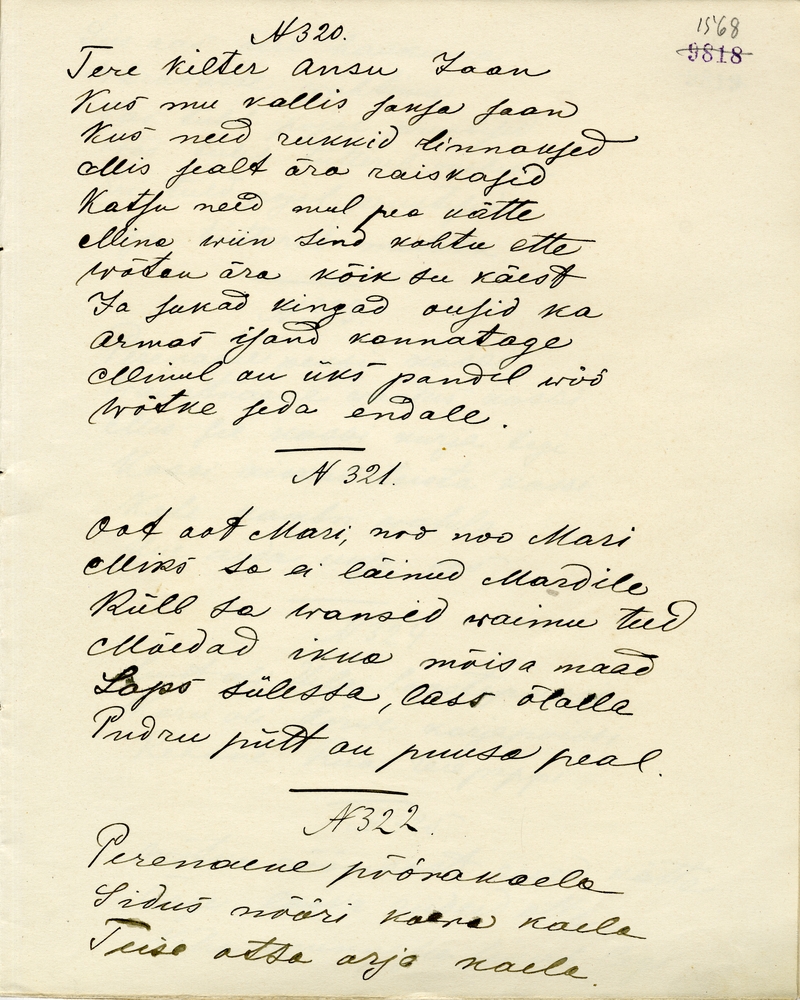 N 320.
1568
9818
Tere kilter Ansu Jaan
Kus mu kallis saksa saan
Kus need rukkid linnaksed
Mis sealt ära raiskasid
Katsu need mul pea kätte
Mina wiin sind kohtu ette
Wõtan ära kõik su käest
Ja sukad kingad ousid ka
Armas isand kannatage
Minul on üks pandil wöö
Wõtke seda endale.
N 321.
Oot oot Mari, noo noo Mari
Miks sa ei läinud Mardile
Küll sa wansid waimu teed
Mõedad ikka mõisa maad
Laps sülessa, lass õlalla
Pudru pütt on puusa peal.
N 322.
Perenaene pöörakaela
Sidus nööri koera kaela
Teise otsa orja kaela.